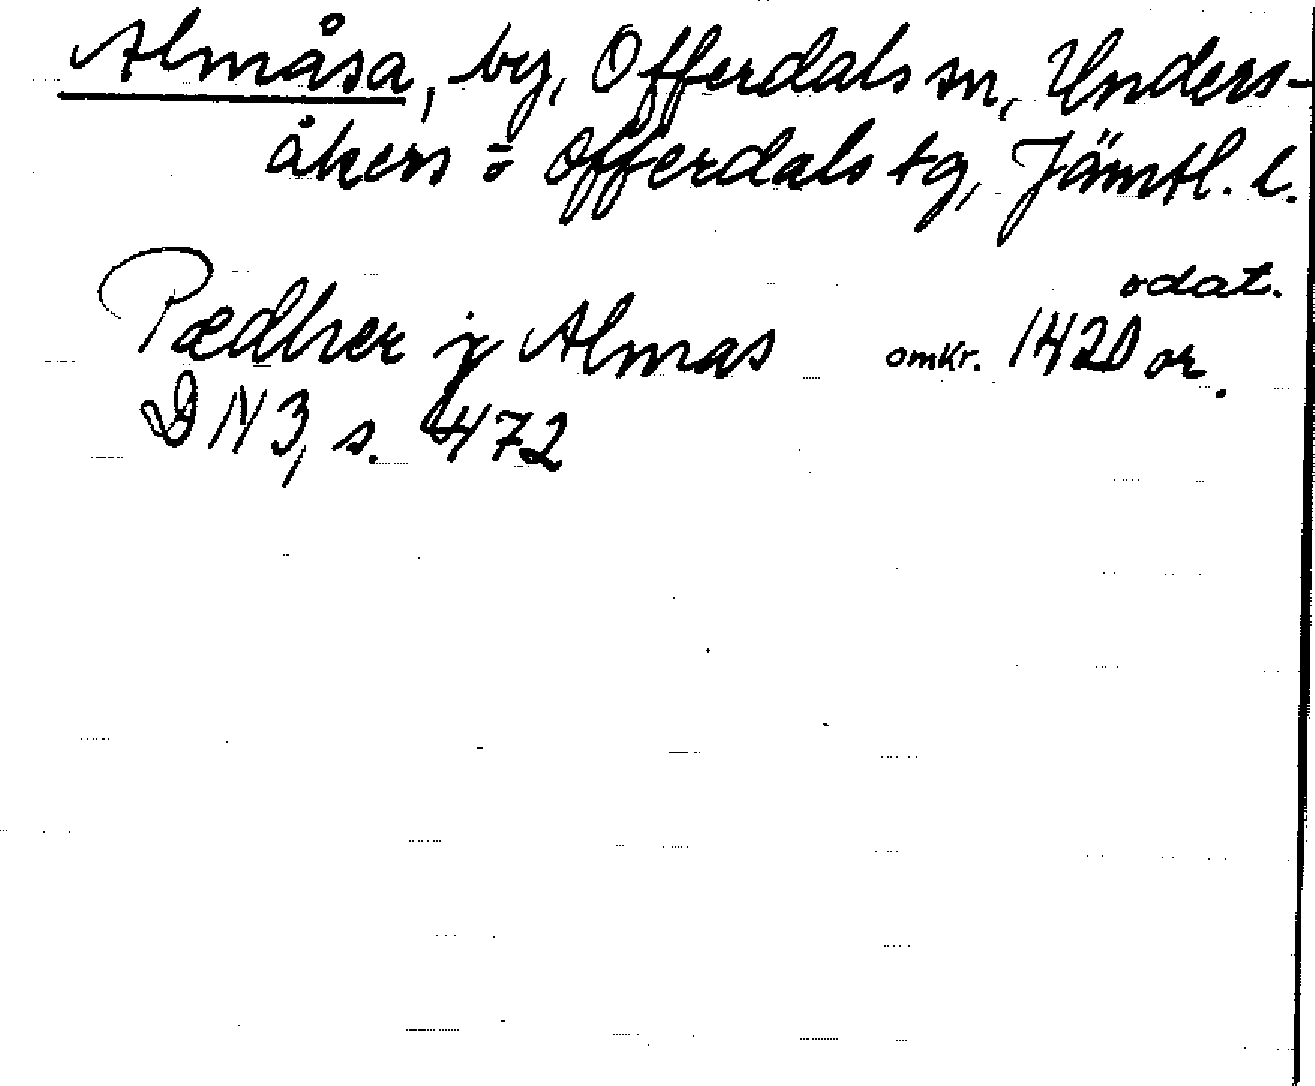 Almåsa, by, Offerdals sn, Unders-
åkers o Offerdals tg, Jämtl. l.
odat.
Pædher j Almas omkr. 1420 or.
DN 3, s. 472